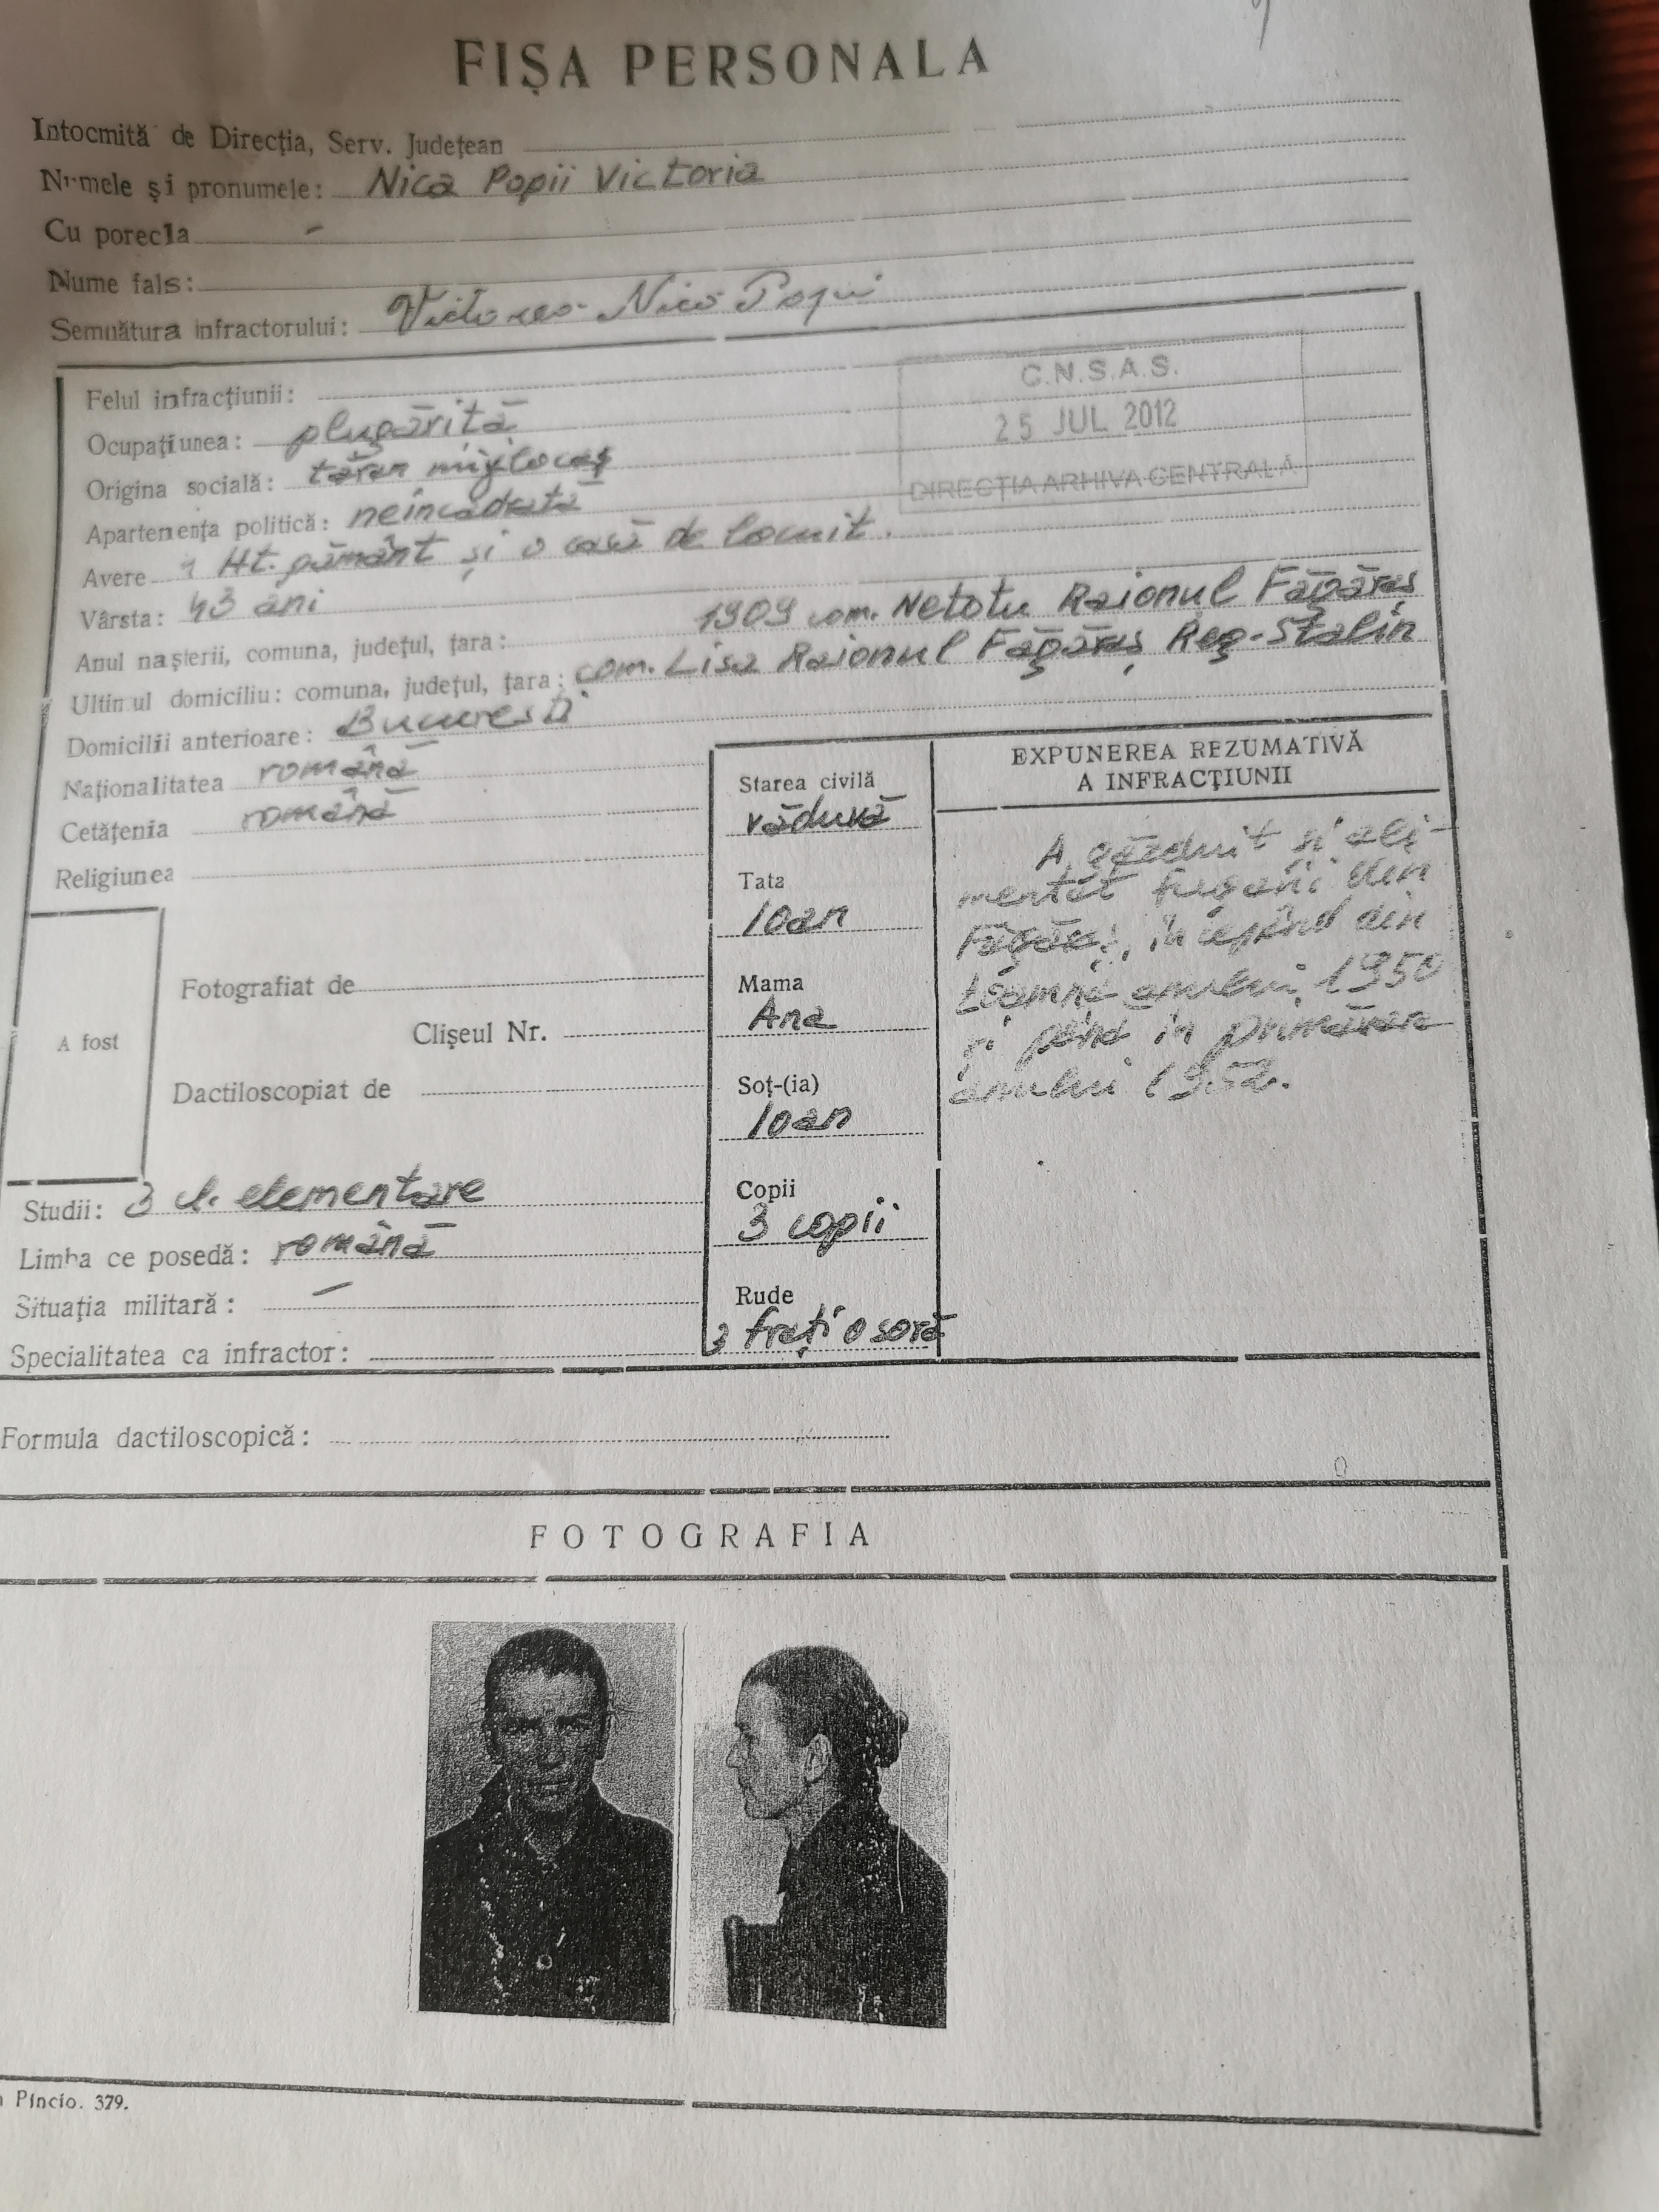 FIȘA PERSONALA
Intocmită de Direcția, Serv. Județean
Numele și pronumele: Nica Popii Victoria
Cu porecla -
Nume fals:
Semnătura infractorului: Victorea Nica Popii
Felul infracțiunii:
C.N.S.A.S.
25 JUL 2012
DIRECȚIA ARHIVA CENTRALĂ
Ocupațiunea: plugăriță
Origina socială: țăran mijlocaș
Apartenența politică: neîncadrată
Avere 1 Ht. pământ și o casă de locuit.
Vârsta: 43 ani
Anul nașterii, comuna, județul, țara: 1909 com. Netotu Raionul Făgăraș
Ultimul domiciliu: comuna, județul, țara: com. Lisa Raionul Făgăraș Reg-Stalin
Domicilii anterioare: București
Naționalitatea română
Cetățenia română
Religiunea
A fost
Fotografiat de
Clișeul Nr.
Dactiloscopiat de
Studii: 3 cl. elementare
Limba ce posedă: română
Situația militară: -
Specialitatea ca infractor:
Starea civilă
văduvă
Tata
Ioan
Mama
Ana
Soț-(ia)
Ioan
Copii
3 copii
Rude
3 frați o soră
EXPUNEREA REZUMATIVĂ
A INFRACȚIUNII
A găzduit și ali-
mentat fugarii din
Făgăraș, începând din
toamna anului 1950
și până în primăvara
anului 1952.
Formula dactiloscopică:
FOTOGRAFIA
Pincio. 379.